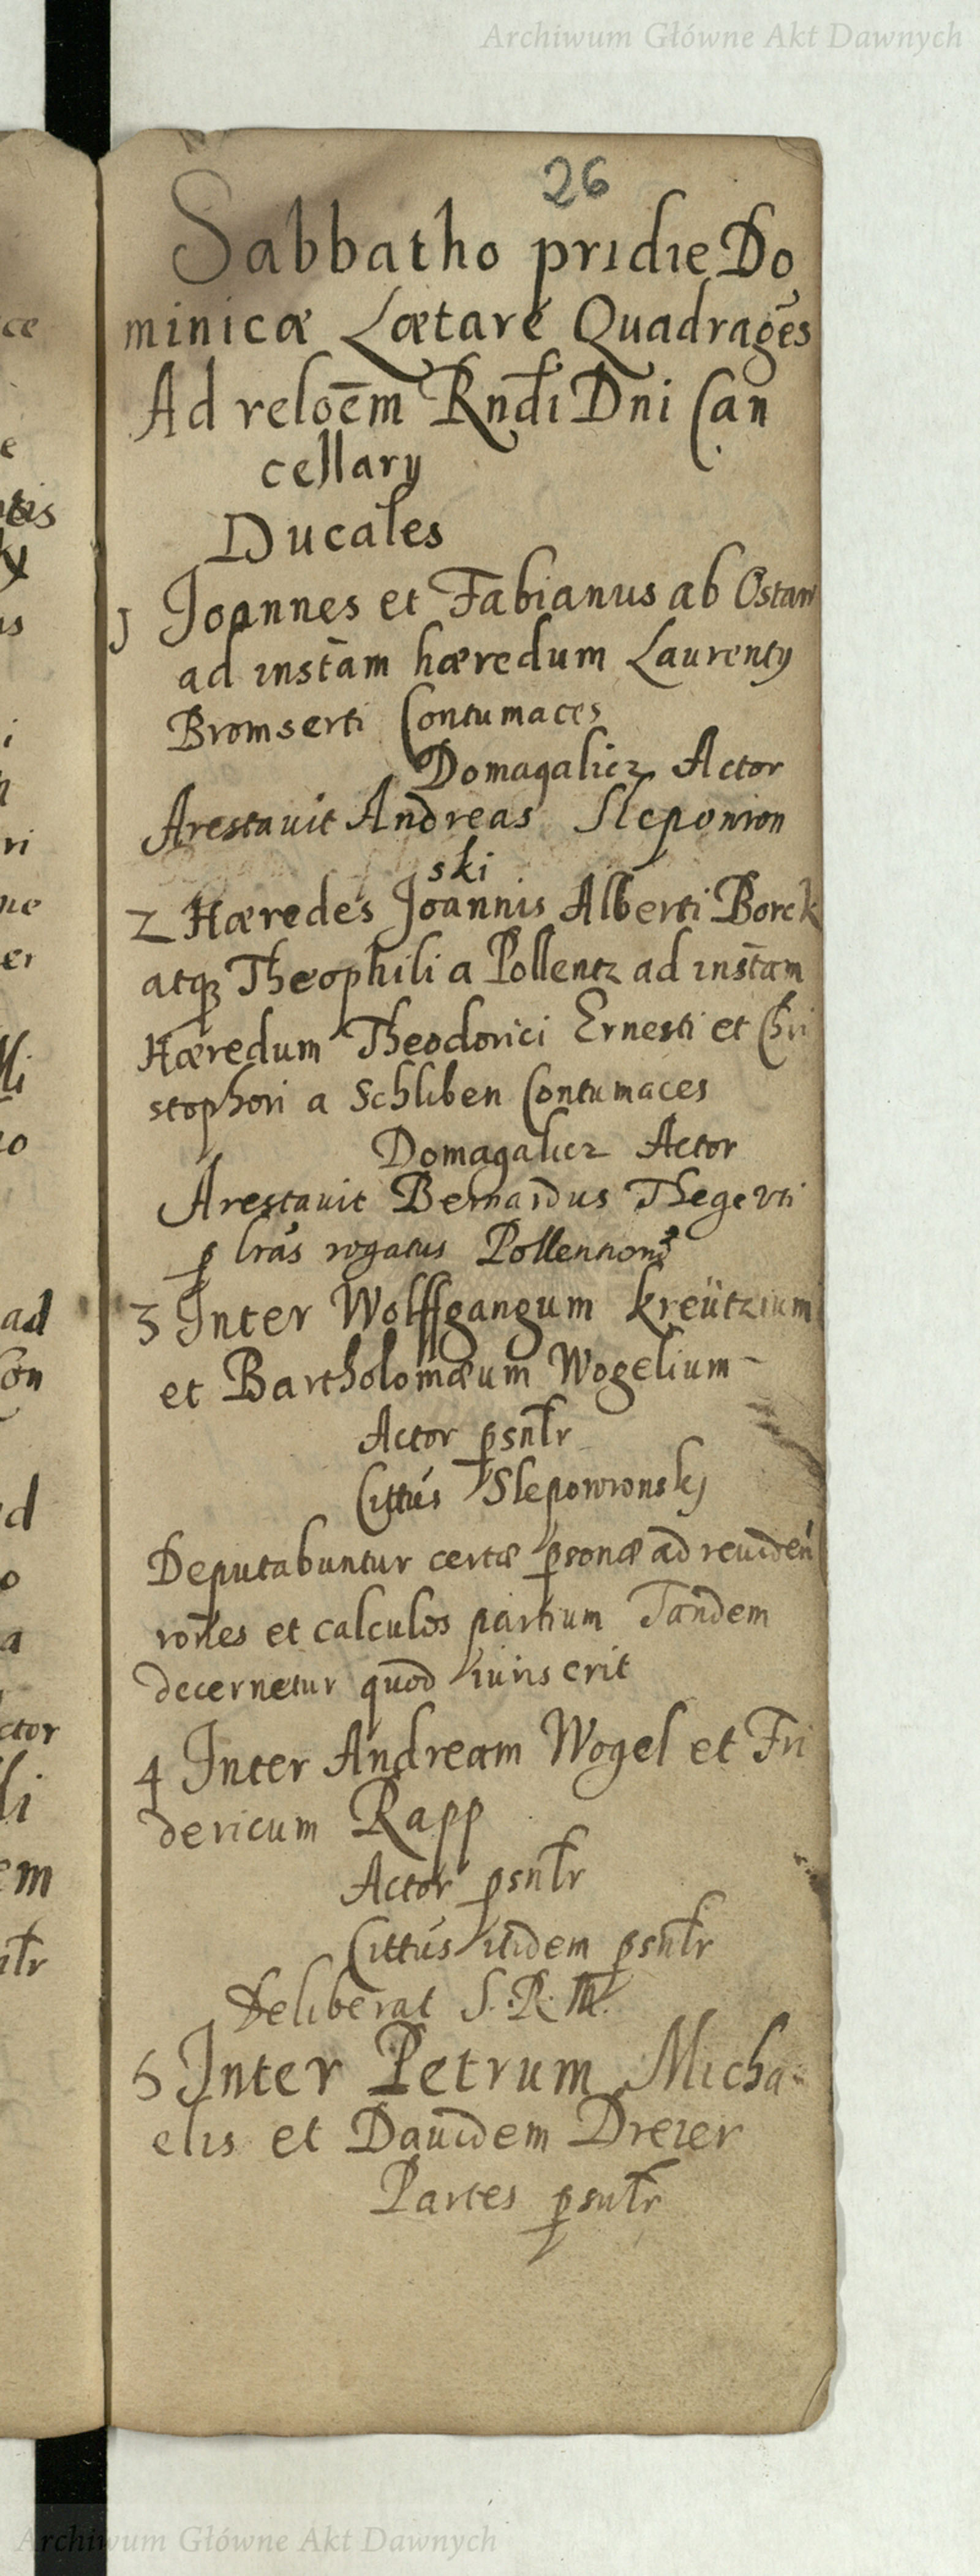 Archiwum Główne Akt Dawnych
26
Sabbatho pridie Do
minicæ Lætare Quadrages
Ad reloēm Rndi Dni Can
cellary
Ducales
1 Joannes et Fabianus ab Ostaw
ad instām hæredum Laurenty
Bromserti Contumaces
Domagalicz Actor
Arestauit Andreas Slepowron
ski
2 Hæredes Joannis Alberti Borck
atq3 Theophili a Pollentz ad instām
Hæredum Theodorici Ernesti et Chri
stophori a Schliben Contumaces
Domagalicz Actor
Arestauit Bernardus Thegerti
p lrās rogatus
3 Inter Wolffgangum Kreützium
et Bartholomæum Wogelium
Actor psnlr
Cittus Slepowronskj
Deputabuntur certæ psonæ ad reuiden
rones et calculos partium Tandem
decernetur quod iuris erit
4 Inter Andream Wogel et Fri
dericum Rapp
Actor psnlr
Cittus itidem psnlr
Deliberat S. R. M.
5 Inter Petrum Micha
elis et Dauidem Dreier
Partes psnlr
Archiwum Główne Akt Dawnych